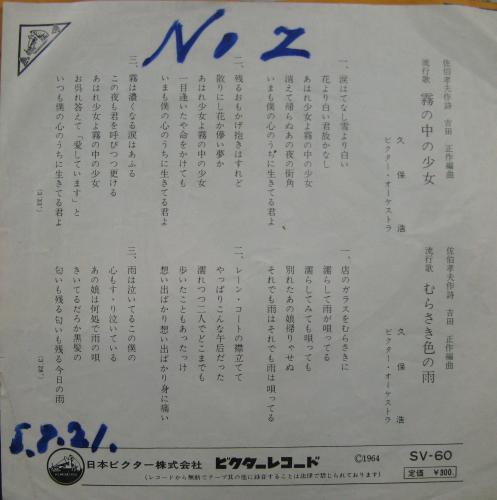 No 2
佐伯孝夫作詩 吉田 正作編曲
流行歌 霧の中の少女
久保 浩
ビクター・オーケストラ
一、涙はてなし雪より白い
花より白い君故かなし
あはれ少女よ霧の中の少女
消えて帰らぬあの夜の街角
いまも僕の心のうちに生きてる君よ
二、残るおもかげ抱きはすれど
散りにし花か儚い夢か
あはれ少女よ霧の中の少女
一目逢いたや命をかけても
いまも僕の心のうちに生きてる君よ
三、霧は濃くなる涙はあふる
この夜も君を呼びつつ更ける
あはれ少女よ霧の中の少女
お呉れ答えて「愛しています」と
いつも僕の心のうちに生きてる君よ
佐伯孝夫作詩 吉田 正作編曲
流行歌 むらさき色の雨
久保 浩
ビクター・オーケストラ
一、店のガラスをむらさきに
濡らして雨が唄ってる
濡らしてみても唄っても
別れたあの娘帰りゃせぬ
それでも雨はそれでも雨は唄ってる
二、レーン・コートの襟立てて
やっぱりこんな午后だった
濡れつつ二人でどこまでも
歩いたこともあったっけ
想い出ばかり想い出ばかり身に痛い
三、雨は泣いてるこの僕の
心もす、り泣いている
あの娘は何処で雨の唄
きいてるだろか黒髪の
匂いも残る匂いも残る今日の雨
日本ビクター株式会社 ビクターレコード
©1964
SV-60
定価 ¥300.
(レコードから無断でテープ其の他に録音することは法律で禁じられております)